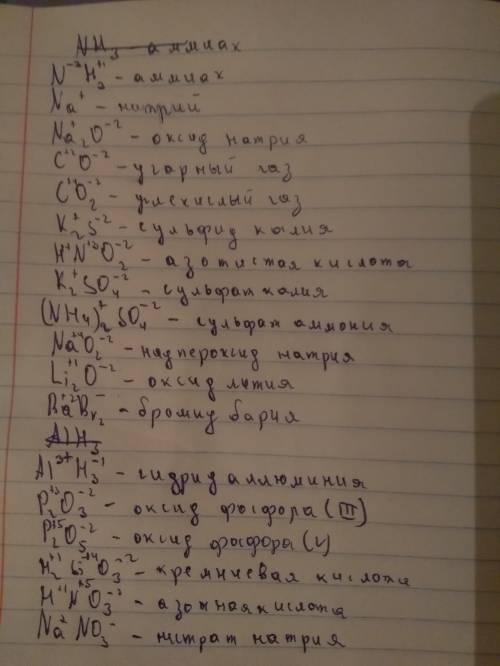 NH₃ - аммиак
N⁻³H₃⁺¹ - аммиак
Na⁺ - натрий
Na₂⁺O⁻² - оксид натрия
C⁺²O⁻² - угарный газ
C⁺⁴O₂⁻² - углекислый газ
K₂⁺S⁻² - сульфид калия
H⁺N⁺³O₂⁻² - азотистая кислота
K₂⁺SO₄⁻² - сульфат калия
(NH₄)₂⁺SO₄⁻² - сульфат аммония
Na⁺⁴O₂⁻² - надпероксид натрия
Li₂⁺¹O⁻² - оксид лития
Ba⁺²Br₂⁻ - бромид бария
AlH₃
Al³⁺H₃⁻¹ - гидрид аллюминия
P₂⁺³O₃⁻² - оксид фосфора (III)
P₂⁺⁵O₅⁻² - оксид фосфора (V)
H₂⁺¹Si⁺⁴O₃⁻² - кремниевая кислота
H⁺¹N⁺⁵O₃⁻² - азотная кислота
Na⁺NO₃⁻ - нитрат натрия